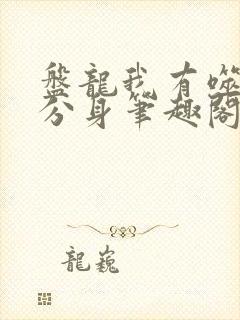 盤龍我有噬
分身筆趣閣
龍巍